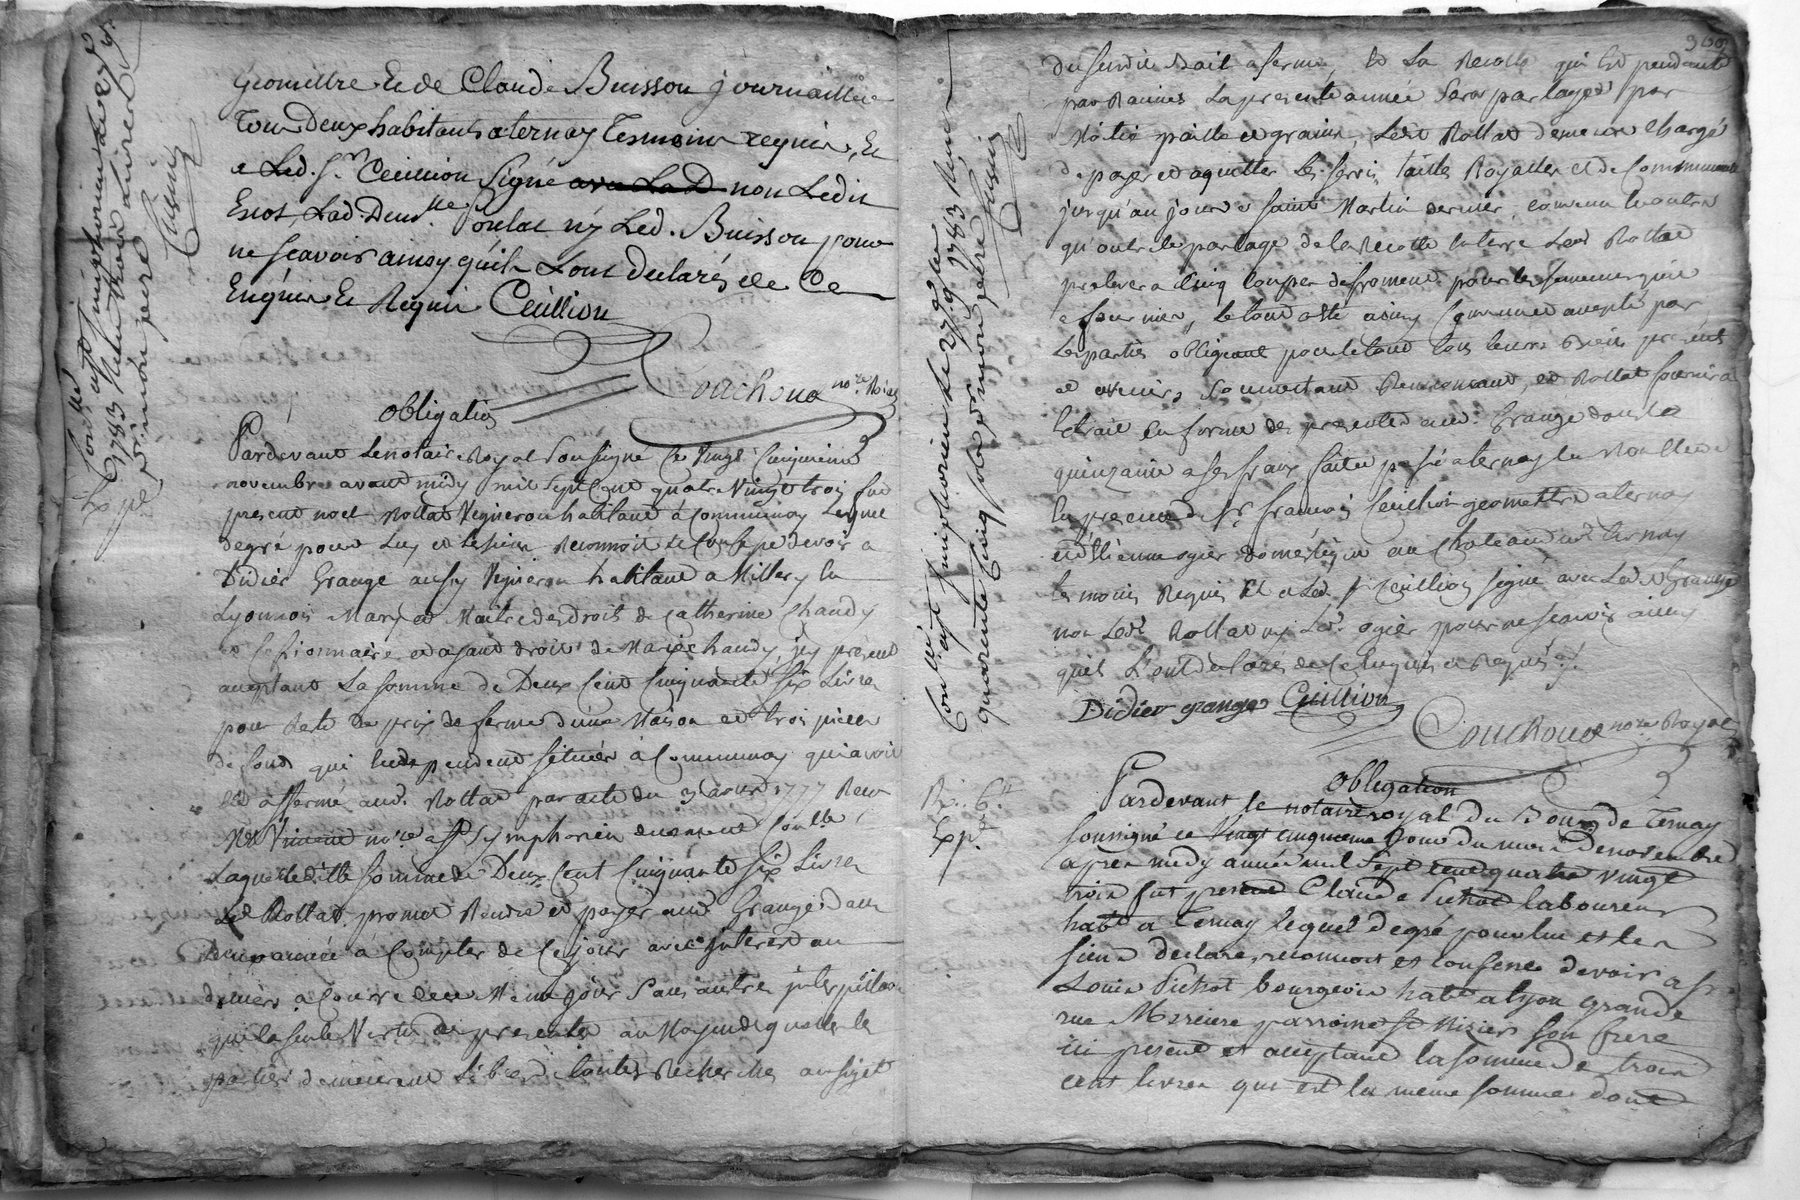 geomettre et de Claude Buisson journaillier
Tous Deux habitants a ternay Temoins requis, Et
a Led. Sr. Ceuillion Signé avec La D non Ledit
Led. Demlle Poulat ny Led. Buisson pour
ne scavoir ainsy qu'ils L'ont declarés de Ce
Enquis Et Requis Ceuillion
Couchoud nore Roial
obligation
Pardevant Le notaire Royal Soussigné Ce Vingt Cinquieme
novembre avant midy mil Sept Cent quatre Vingt trois fut
present noel Rollat Vigneron habitant à Communay Lequel
degré pour Luy et Les siens Reconnoit et Confesse devoir a
Didier Grange aussy Vigneron habitant a Millery en
Lyonnois Mary et Maitre des Droits de Catherine Chaudy
et Cessionnaire et ayant droit de Marie Chaudy icy present
acceptant La somme de Deux Cent Cinquante Six Livres
pour Reste de prix de ferme d'une Maison et trois pieces
de fonds qui en dependent situées à Communay qui avoit
été affermé aud. Rollat par acte du 3 avril 1777 Reçu
Me Vincent nore a St Symphorien duement Conllé
Laquelle ditte somme de Deux Cent Cinquante Six Livres
Led Rollat promet Rendre et payer aud Grange dans
Deux années à Compter de Ce jour avec interest au
denier a Courre de Ce Meme jour Sans autre interpellation
que la seule Vertu des presentes au Moyen de quoy les
parties demeurent Libres de toutes Recherches au sujet
Conllé a St Simphorien le 27 9bre
1783 Reçu trois livres
pr mon pere Cusin
Exp.
du susdit Bail a ferme, Et La Recolte qui est pendante
par Racines La presente année sera partagée par
Moitié paille et grains, Led Rollat demeure Chargé
de payer et aquitter Les servis, tailles Royalles et de Communauté
jusqu'au jour de saint Martin dernier, convenu en outre
qu'outre le partage de la Recolte en terre Led Rollat
prelevera Cinq Coupes de froment pour les semences qu'il
a fournies, Le tout a été ainsy Convenu et accepté par
Les parties obligeant pour le tout tous leurs Biens presents
et avenirs, soumettant Renonceant, et Rollat fournira
Extrait en forme des presentes aud. Grange dans la
quinzaine a ses fraix fait et passé a ternay en Mon Etude
En presence de Sr. francois Ceuillion geomettre a ternay
et d'Etienne ogier domestique au Chateau dud ternay
temoins Requis Et a Led Sr Ceuillion signé avec Led Grange
non Led. Rollat ny Led. ogier pour ne scavoir ainsy
quils L'ont declaré de Ce Enquis et Requis
Didier grange Ceuillion
Couchoud nore Royal
Conllé a St Simphorien le 27 9bre
1783 Reçu
quarente Cinq sols pr mon pere Cusin
Obligation
Rx. 6.
Exp.
Pardevant le notaire royal du Bourg de Ternay
soussigné ce Vingt cinquieme Jour du mois de novembre
apres midy année mil Sept cent quatre Vingt
trois fut present Claude Pichot laboureur
habt a Ternay lequel degré pour lui et les
siens declare, reconnoit et confesse devoir a Sr
Louis Pichot bourgeois habt a lyon grande
rue Merciere parroisse St Nizier son frere
ici present et acceptant la somme de trois
cent livres qui est la meme somme dont